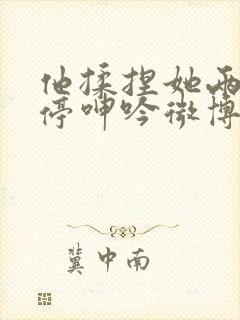 他揉捏她两
停呻吟微博
冀中南